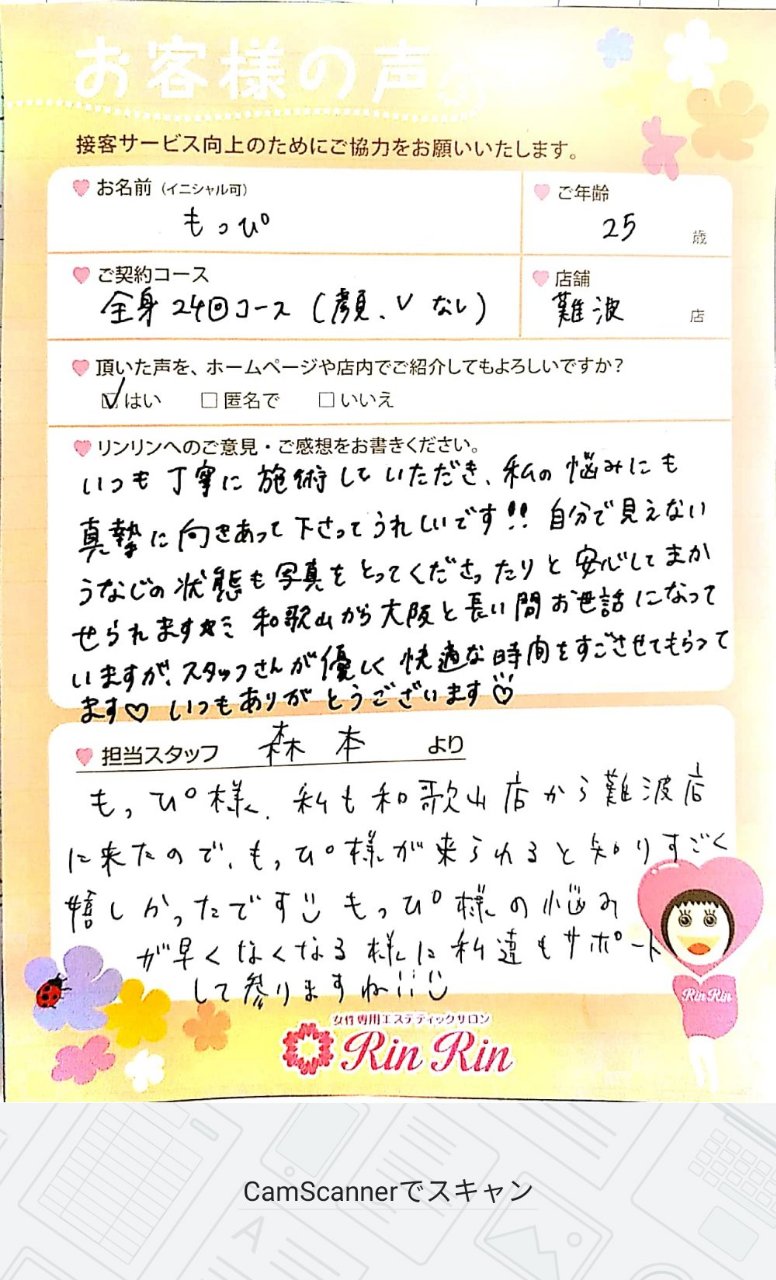 お客様の声
接客サービス向上のためにご協力をお願いいたします。
お名前（イニシャル可）
もっぴ
ご年齢
25 歳
ご契約コース
全身24回コース（顔、Vなし）
店舗
難波 店
頂いた声を、ホームページや店内でご紹介してもよろしいですか？
☑はい □匿名で □いいえ
リンリンへのご意見・ご感想をお書きください。
いつも丁寧に施術していただき、私の悩みにも
真摯に向きあって下さってうれしいです!! 自分で見えない
うなじの状態も写真をとってくださったりと安心してまか
せられます 和歌山から大阪と長い間お世話になって
いますが、スタッフさんが優しく快適な時間をすごさせてもらって
ます♡ いつもありがとうございます♡
担当スタッフ 森本 より
もっぴ様、私も和歌山店から難波店
に来たので、もっぴ様が来られると知りすごく
嬉しかったです もっぴ様の悩み
が早くなくなる様に私達もサポート
して参りますね!!
Rin Rin
女性専用エステティックサロン
Rin Rin
CamScannerでスキャン